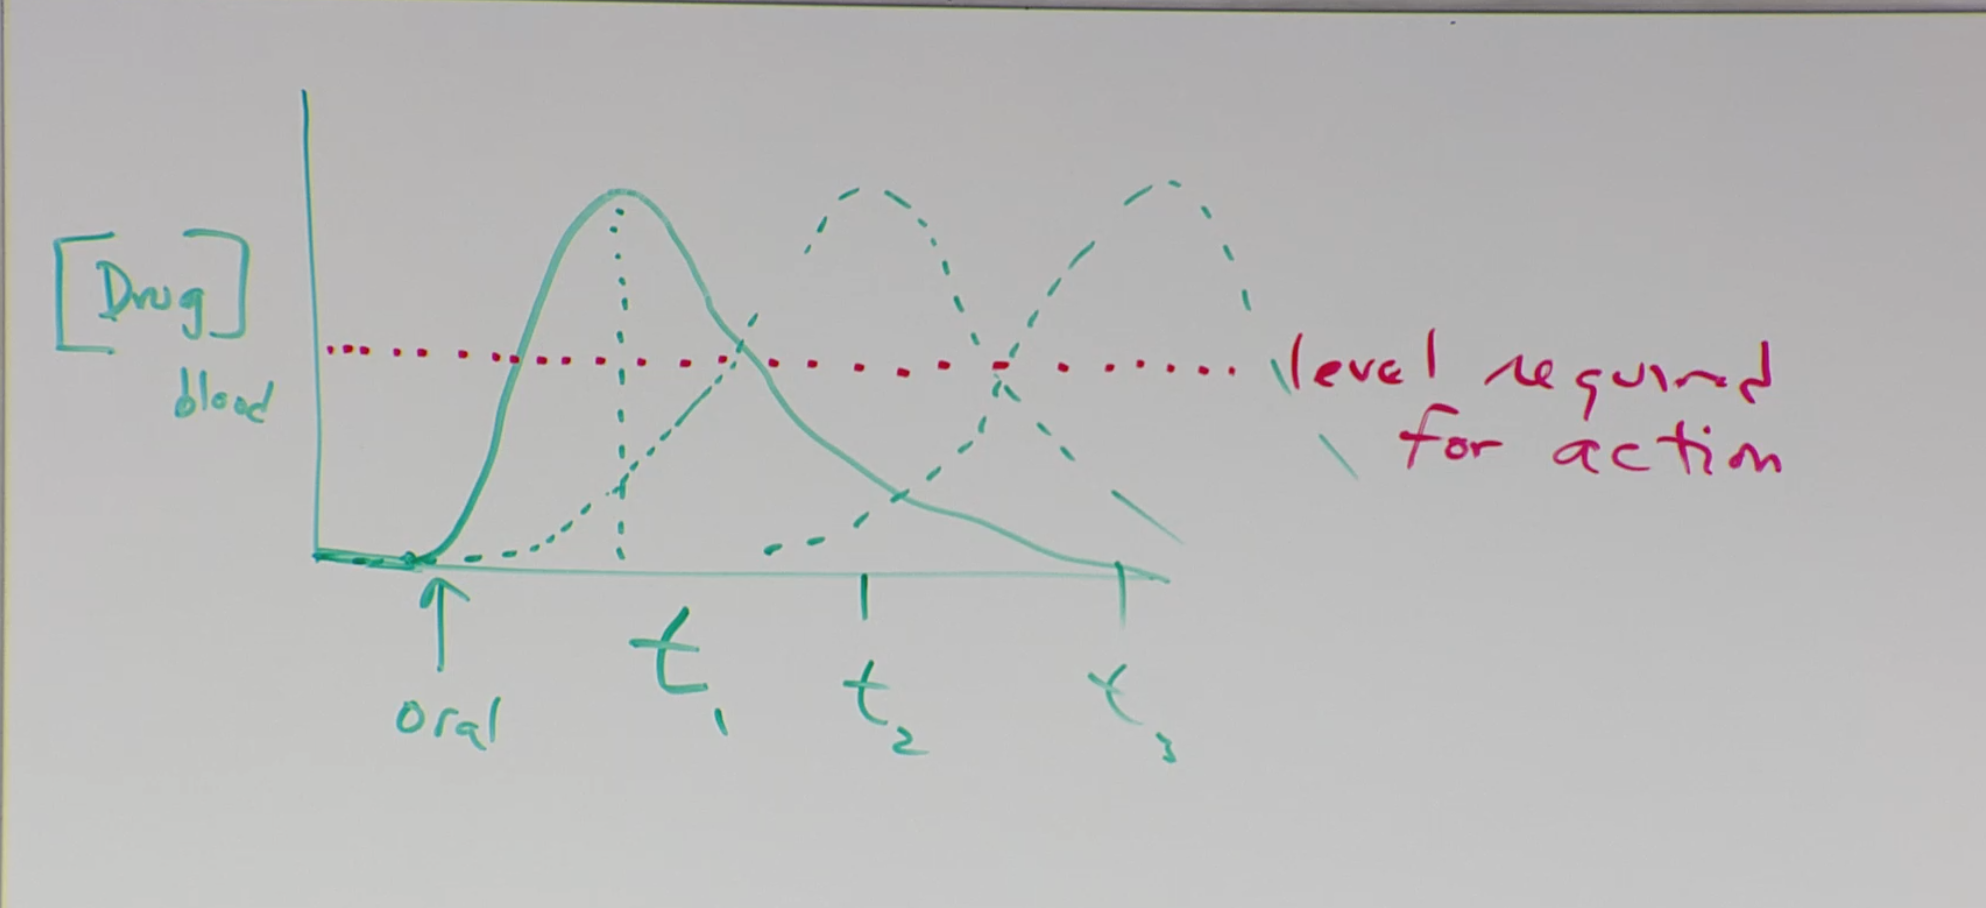 [Drug]
blood
level required
for action
oral
t₁
t₂
t₃